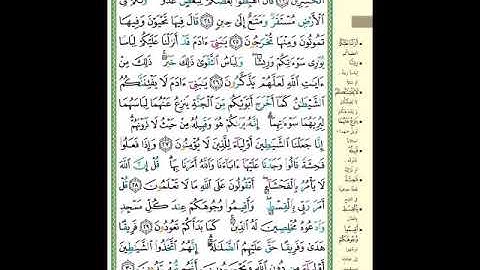 ٱلْخَٰسِرِينَ ٢٣ قَالَ ٱهْبِطُوا۟ بَعْضُكُمْ لِبَعْضٍ عَدُوٌّ
ٱلْأَرْضِ مُسْتَقَرٌّ وَمَتَٰعٌ إِلَىٰ حِينٍ ٢٤ قَالَ فِيهَا تَحْيَوْنَ وَفِيهَا
تَمُوتُونَ وَمِنْهَا تُخْرَجُونَ ٢٥ يَٰبَنِىٓ ءَادَمَ قَدْ أَنزَلْنَا عَلَيْكُمْ لِبَاسًا
يُوَٰرِى سَوْءَٰتِكُمْ وَرِيشًا ۖ وَلِبَاسُ ٱلتَّقْوَىٰ ذَٰلِكَ خَيْرٌ ۚ ذَٰلِكَ مِنْ
ءَايَٰتِ ٱللَّهِ لَعَلَّهُمْ يَذَّكَّرُونَ ٢٦ يَٰبَنِىٓ ءَادَمَ لَا يَفْتِنَنَّكُمُ
ٱلشَّيْطَٰنُ كَمَآ أَخْرَجَ أَبَوَيْكُم مِّنَ ٱلْجَنَّةِ يَنزِعُ عَنْهُمَا لِبَاسَهُمَا
لِيُرِيَهُمَا سَوْءَٰتِهِمَآ ۗ إِنَّهُۥ يَرَىٰكُمْ هُوَ وَقَبِيلُهُۥ مِنْ حَيْثُ لَا تَرَوْنَهُمْ ۗ
إِنَّا جَعَلْنَا ٱلشَّيَٰطِينَ أَوْلِيَآءَ لِلَّذِينَ لَا يُؤْمِنُونَ ٢٧ وَإِذَا فَعَلُوا۟
فَٰحِشَةً قَالُوا۟ وَجَدْنَا عَلَيْهَآ ءَابَآءَنَا وَٱللَّهُ أَمَرَنَا بِهَا ۗ قُلْ إِنَّ ٱللَّهَ
لَا يَأْمُرُ بِٱلْفَحْشَآءِ ۖ أَتَقُولُونَ عَلَى ٱللَّهِ مَا لَا تَعْلَمُونَ ٢٨ قُلْ
أَمَرَ رَبِّى بِٱلْقِسْطِ ۖ وَأَقِيمُوا۟ وُجُوهَكُمْ عِندَ كُلِّ مَسْجِدٍ
وَٱدْعُوهُ مُخْلِصِينَ لَهُ ٱلدِّينَ ۚ كَمَا بَدَأَكُمْ تَعُودُونَ ٢٩ فَرِيقًا
هَدَىٰ وَفَرِيقًا حَقَّ عَلَيْهِمُ ٱلضَّلَٰلَةُ ۗ إِنَّهُمُ ٱتَّخَذُوا۟ ٱلشَّيَٰطِينَ
أَوْلِيَآءَ مِن دُونِ ٱللَّهِ وَيَحْسَبُونَ أَنَّهُم مُّهْتَدُونَ ٣٠